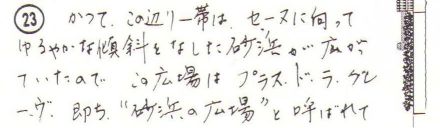 ㉓ かつて、この辺り一帯は、セーヌに向って
ゆるやかな傾斜をなした砂浜が広が
っていたので この広場は プラス、ド、ラ、グレ
ーヴ、即ち、"砂浜の広場"と呼ばれて